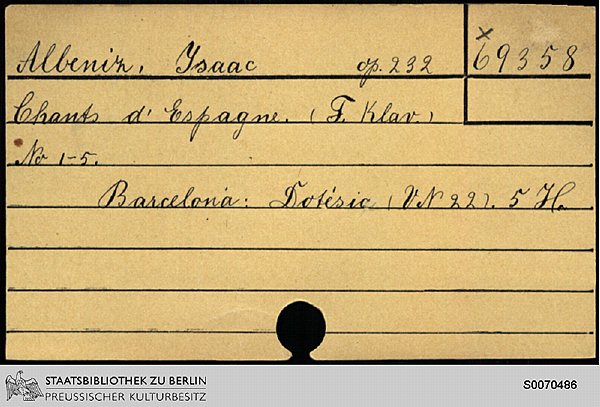 Albeniz, Ysaac op. 232 × 69358
Chants d' Espagne. (F. Klav.)
No 1-5.
Barcelona: Dotésio (VN 22). 5 H.
STAATSBIBLIOTHEK ZU BERLIN
PREUSSISCHER KULTURBESITZ
S0070486